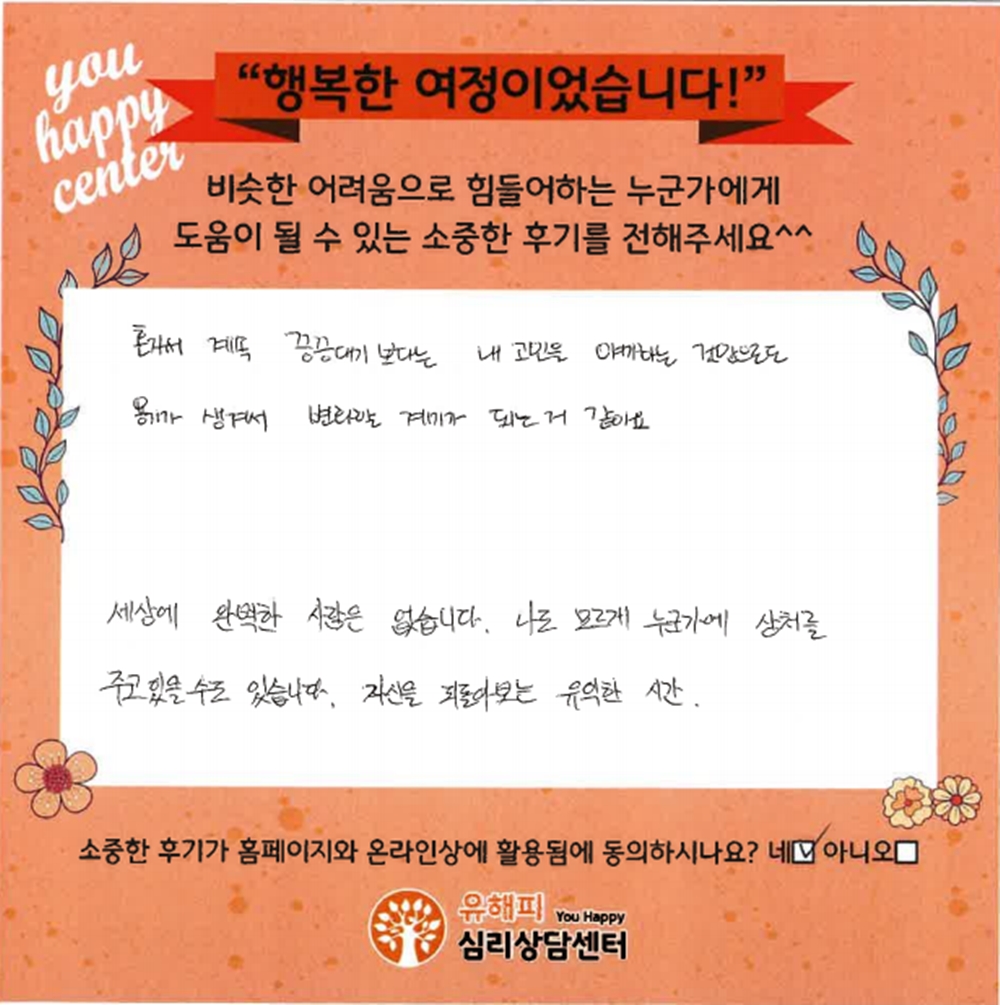 you
happy
center
“행복한 여정이었습니다!”
비슷한 어려움으로 힘들어하는 누군가에게
도움이 될 수 있는 소중한 후기를 전해주세요^^
혼자서 계속 끙끙대기 보다는 내 고민을 얘기하는 것만으로도
용기가 생겨서 변화할 계기가 되는거 같아요
세상에 완벽한 사람은 없습니다. 나도 모르게 누군가에 상처를
주고 있을 수도 있습니다. 자신을 되돌아보는 유익한 시간.
소중한 후기가 홈페이지와 온라인상에 활용됨에 동의하시나요? 네☑ 아니오☐
유해피 You Happy
심리상담센터